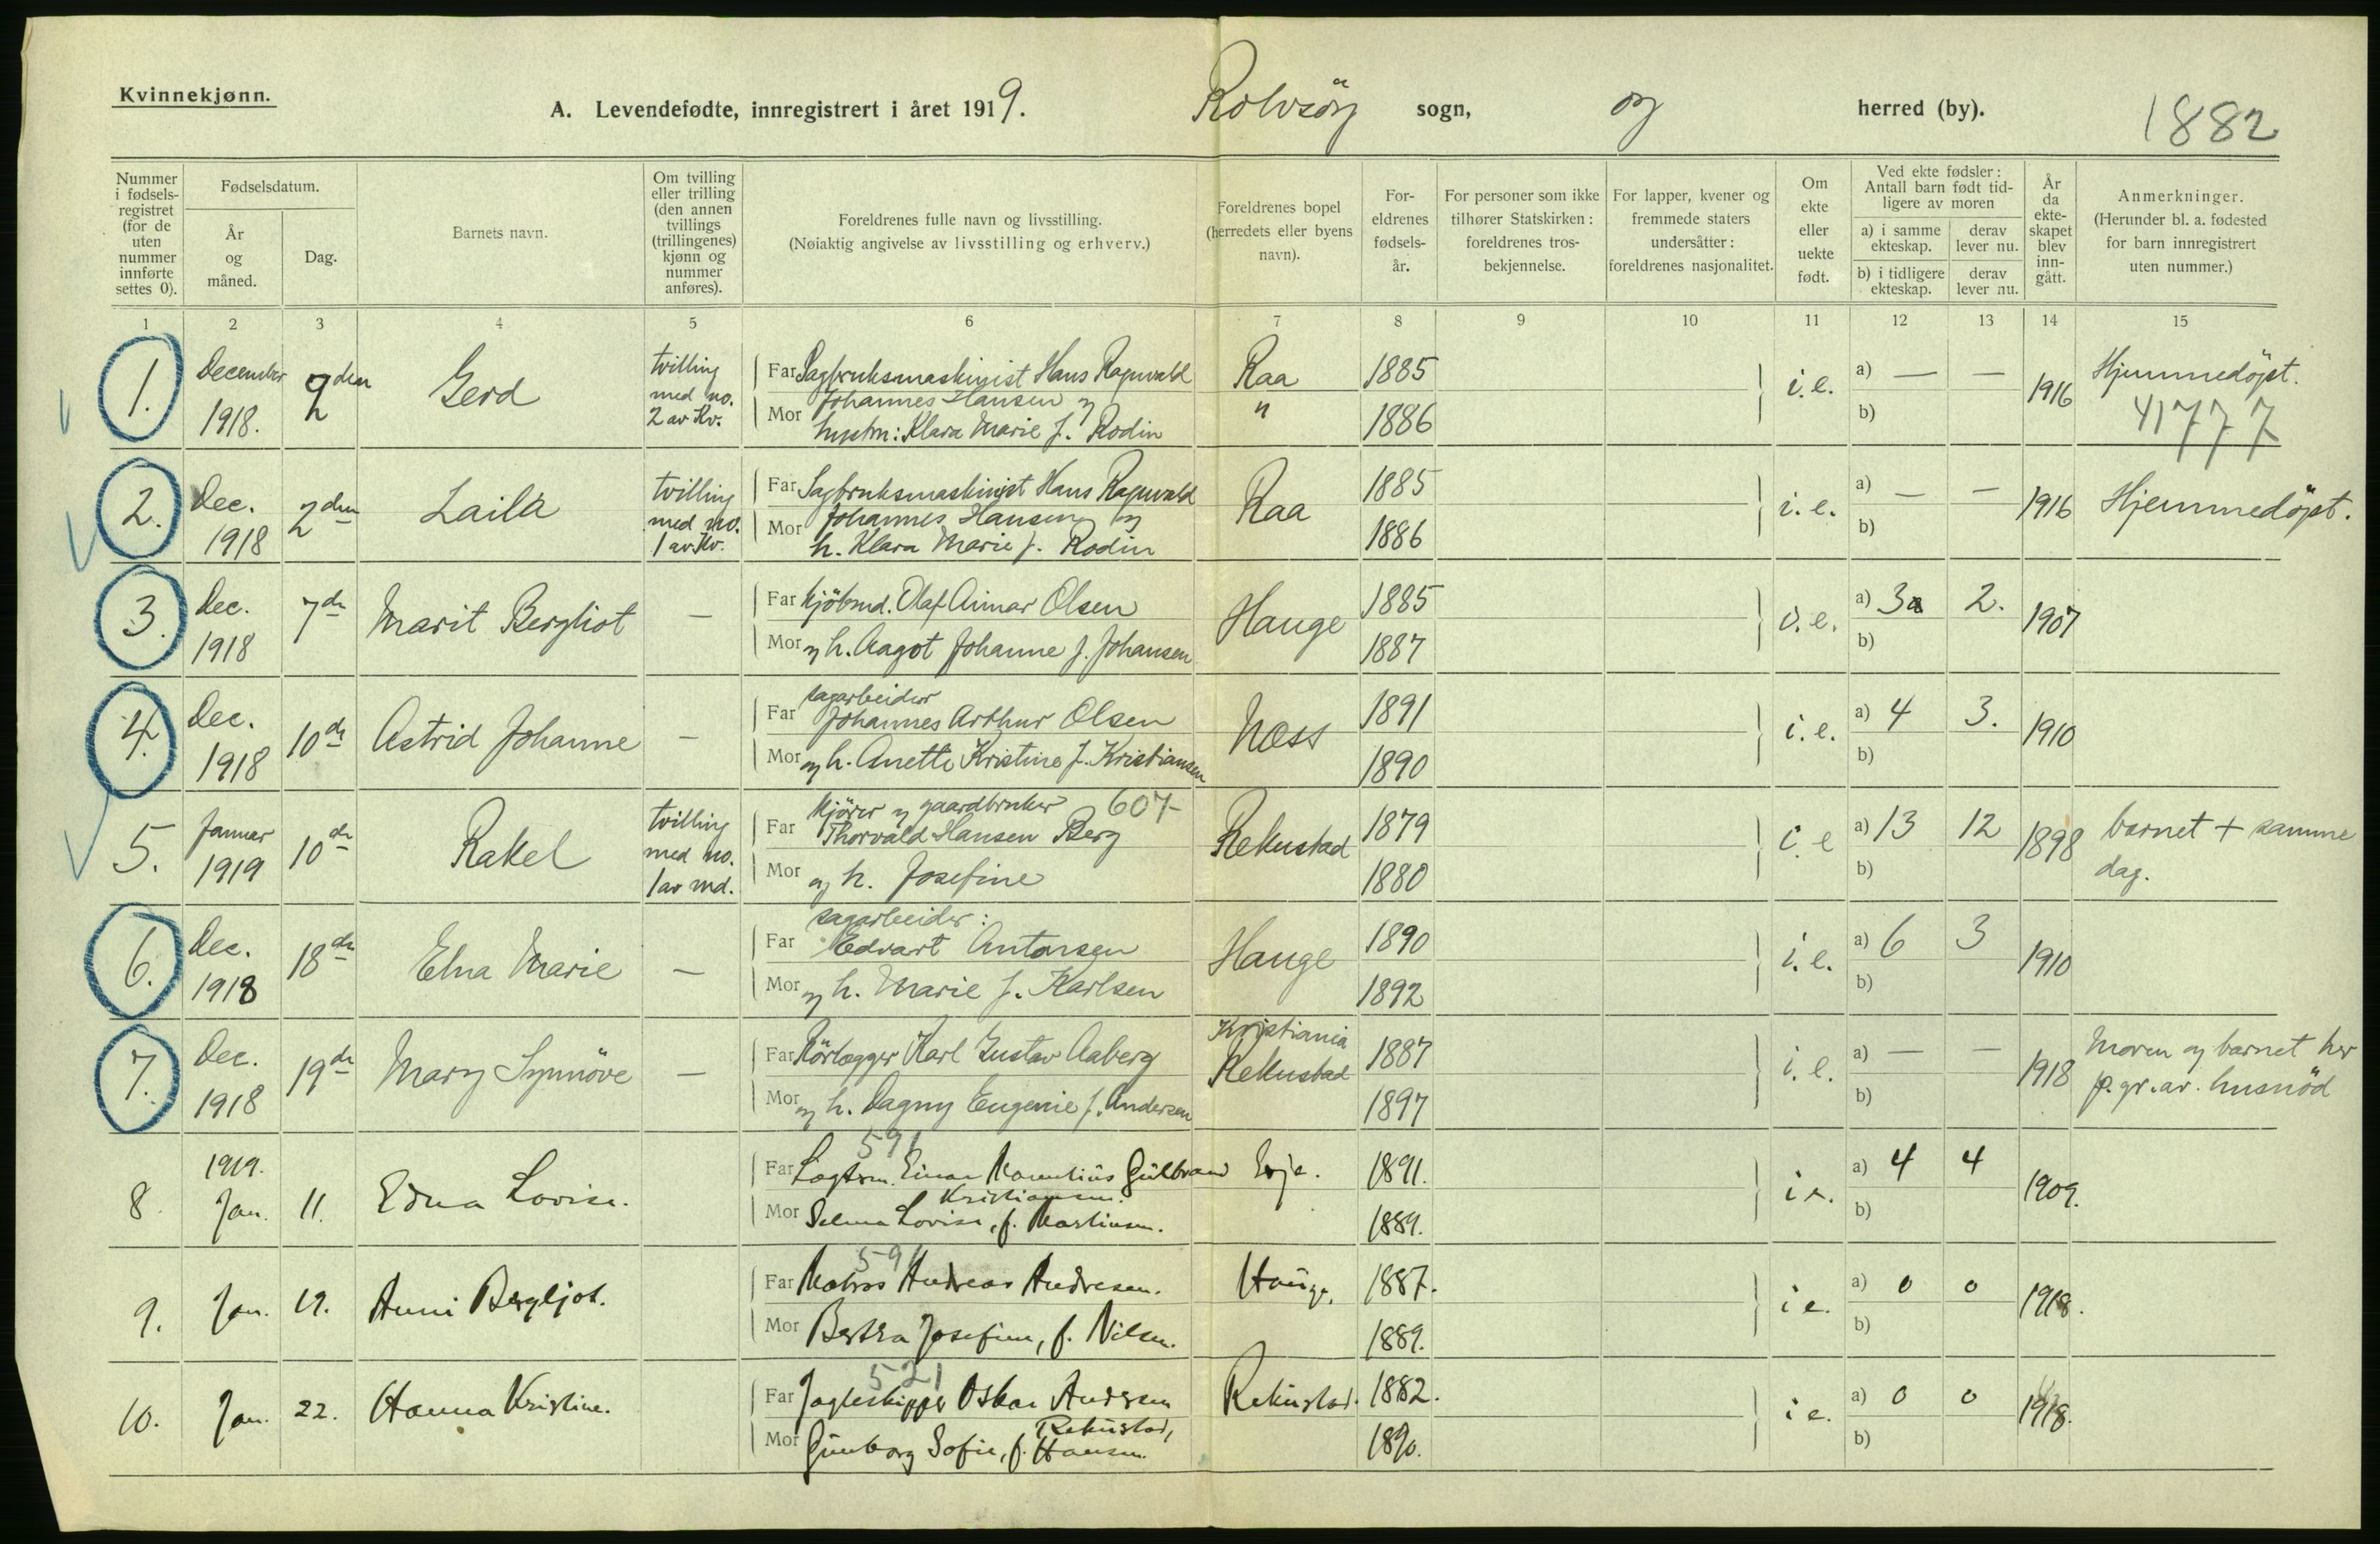 Kvinnekjønn.
A. Levendefødte, innregistrert i året 1919. Rolvsöy sogn, og herred (by). 1882
Nummer i fødselsregistret (for de uten nummer innførte settes 0).
Fødselsdatum.
År og måned.
Dag.
Barnets navn.
Om tvilling eller trilling (den annen tvillings (trillingenes) kjønn og nummer anføres).
Foreldrenes fulle navn og livsstilling.
(Nøiaktig angivelse av livsstilling og erhverv.)
Foreldrenes bopel (herredets eller byens navn).
Foreldrenes fødselsår.
For personer som ikke tilhører Statskirken: foreldrenes trosbekjennelse.
For lapper, kvener og fremmede staters undersåtter: foreldrenes nasjonalitet.
Om ekte eller uekte født.
Ved ekte fødsler: Antall barn født tidligere av moren
a) i samme ekteskap. derav lever nu.
b) i tidligere ekteskap. derav lever nu.
År da ekteskapet blev inngått.
Anmerkninger.
(Herunder bl. a. fødested for barn innregistrert uten nummer.)
1 2 3 4 5 6 7 8 9 10 11 12 13 14 15
1. December 1918. 2den Gerd tvilling med no. 2 av Kv.
Far Sagbruksmaskinist Hans Ragnvald Raa 1885 i.e. a) — — 1916 Hjemmedöpt.
Johannes Hansen og
Mor hustru: Klara Marie f. Rodin " 1886 b) 41777
2. Dec. 1918 2den Laila tvilling med no. 1 av Kv.
Far Sagbruksmaskinist Hans Ragnvald Raa 1885 i.e. a) — — 1916 Hjemmedöpt.
Johannes Hansen og
Mor h. Klara Marie f. Rodin 1886 b)
3. Dec. 1918 7de Marit Bergliot —
Far kjöbmd. Olaf Aimar Olsen Hauge 1885 a) 3 2. 1907
Mor og h. Aagot Johanne f. Johansen 1887 b)
4. Dec. 1918 10de Astrid Johanne —
sagarbeider
Far Johannes Arthur Olsen Næss 1891 i.e. a) 4 3. 1910
Mor og h. Anette Kristine f. Kristiansen 1890 b)
5. Januar 1919 10de Rakel tvilling med no. 1 av md.
kjörer og gaardbruker 607
Far Thorvald Hansen Berg Rekustad 1879 i.e a) 13 12 1898 barnet + samme dag.
Mor og h. Josefine 1880 b)
6. Dec. 1918 18de Elna Marie —
sagarbeider:
Far Edvart Antonsen Hauge 1890 i.e. a) 6 3 1910
Mor og h. Marie f. Karlsen 1892 b)
7. Dec. 1918 19de Mary Synnöve —
Kristiania
Far Rörlægger Karl Gustav Aaberg Rekustad 1887 i.e. a) — — 1918 Moren og barnet her p.gr.av. husnöd
Mor og h. Dagny Eugenie f. Andersen 1897 b)
591
8. 1919. Jan. 11. Edna Lovise.
Far Einar Gülbrand 1891. i e. a) 4 4 1909.
Kristiansen.
Mor Selma Lovise, f. Martinsen. 1889. b)
591
9. Jan. 19. Anni Bergljot.
Far Matros Andreas Andresen. Hauge. 1887. i e. a) 0 0 1918.
Mor Bertha Josefine, f. Nilsen. 1889. b)
521
10. Jan. 22. Hanna Kristine.
Far Jagteskipper Oskar Andersen Rekustad. 1882. i e. a) 0 0 1918.
Rekustad,
Mor Gunborg Sofie, f. Hansen. 1890. b)